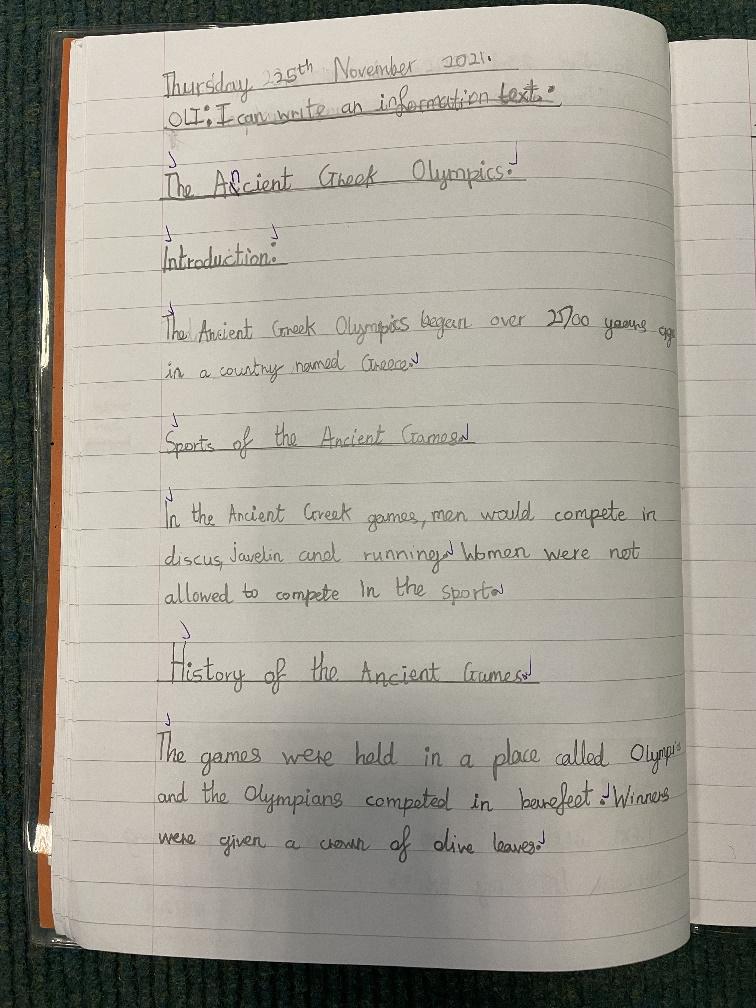 Thursday 25th November 2021.
OLI: I can write an information text.
The Ancient Greek Olympics.
Introduction:
The Ancient Greek Olympics began over 2700 years ago
in a country named Greece.
Sports of the Ancient Games.
In the Ancient Greek games, men would compete in
discus, javelin and running. Women were not
allowed to compete In the sport.
History of the Ancient Games.
The games were held in a place called Olympi
and the Olympians competed in barefeet. Winners
were given a crown of olive leaves.